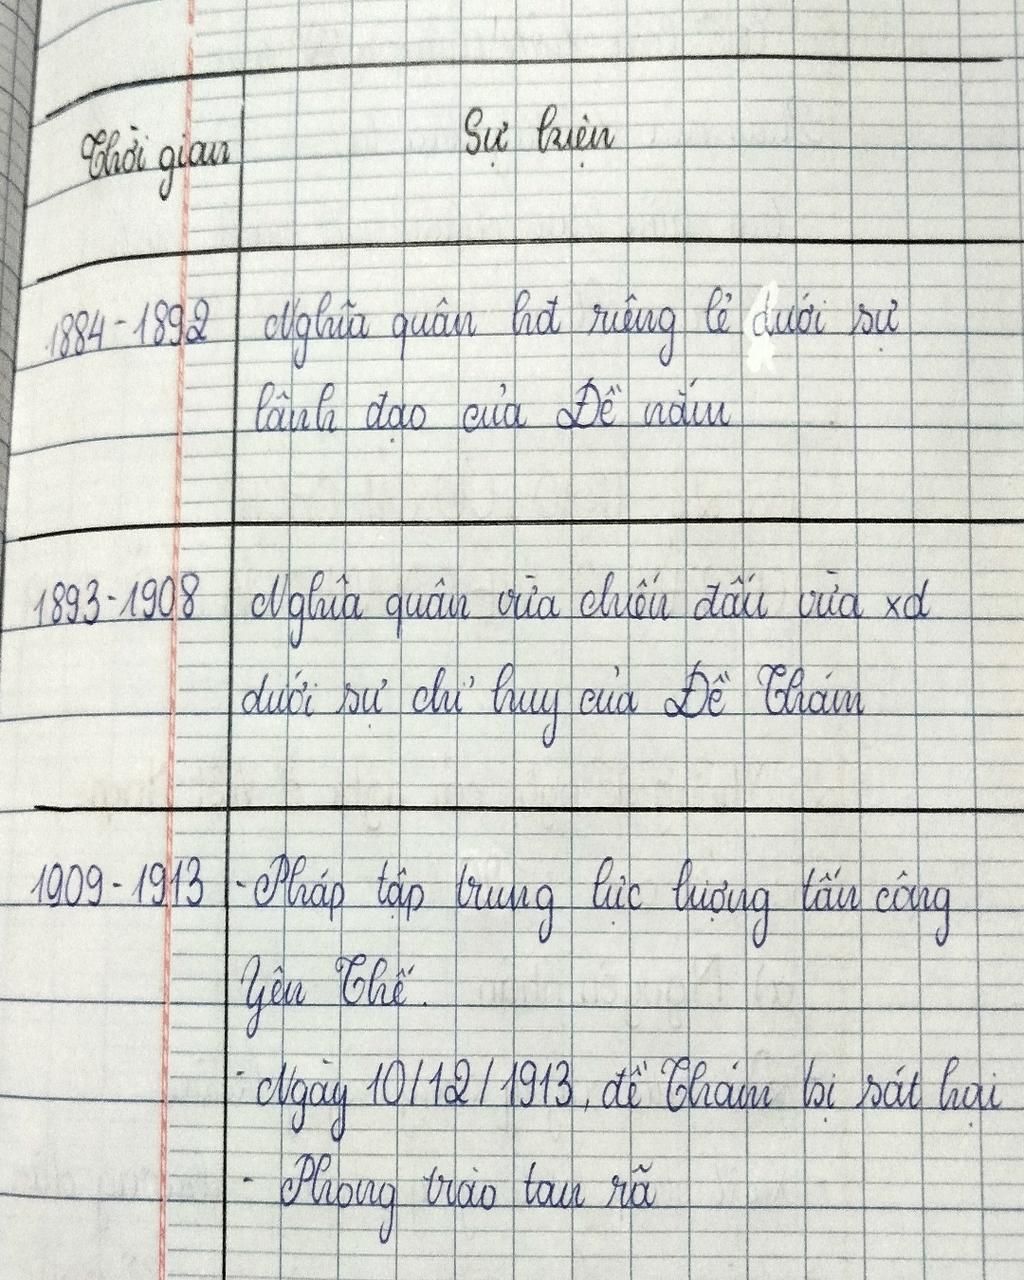 Thời gian Sự kiện
1884-1892 Nghĩa quân hđ riêng lẻ dưới sự
lãnh đạo của Đề nắm
1893-1908 Nghĩa quân vừa chiến đấu vừa xd
dưới sự chỉ huy của Đề Thám
1909-1913 - Pháp tập trung lực lượng tấn công
Yên Thế.
- Ngày 10/12/1913, đề Thám bị sát hại
- Phong trào tan rã